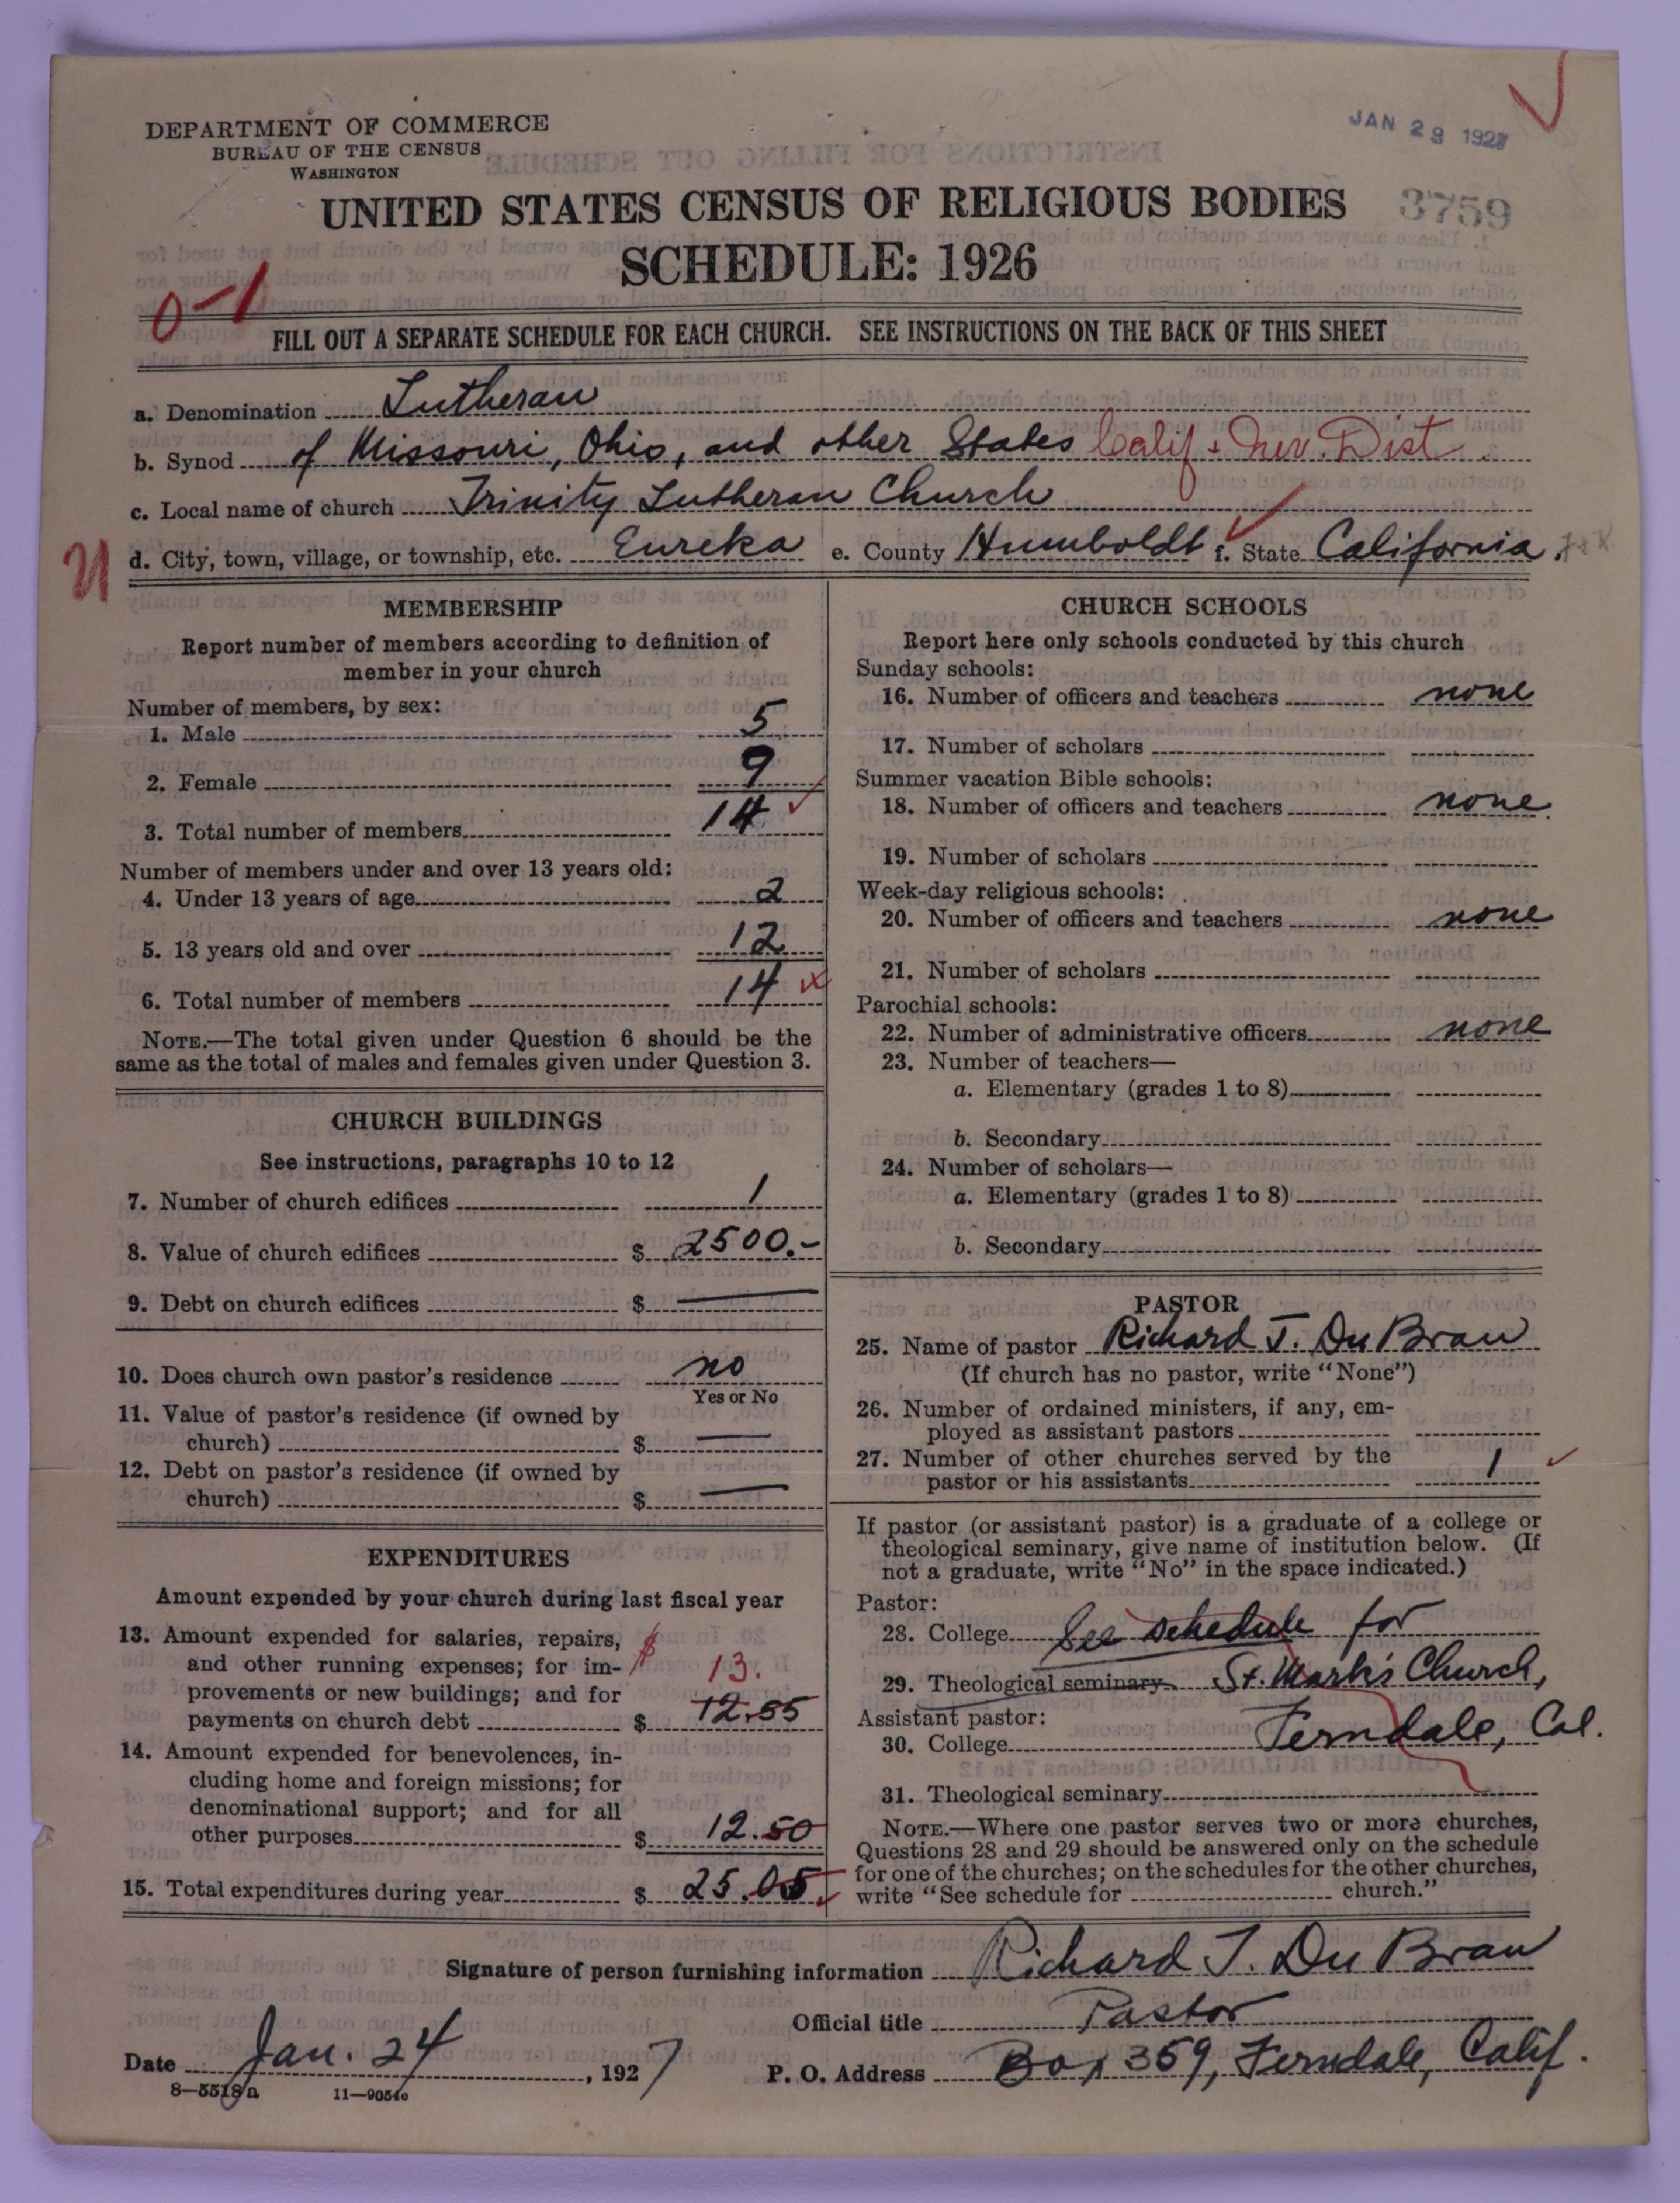 JAN 29 1927
DEPARTMENT OF COMMERCE
BUREAU OF THE CENSUS
WASHINGTON
UNITED STATES CENSUS OF RELIGIOUS BODIES
3759
SCHEDULE: 1926
0-1
FILL OUT A SEPARATE SCHEDULE FOR EACH CHURCH. SEE INSTRUCTIONS ON THE BACK OF THIS SHEET
a. Denomination Lutheran
b. Synod of Missouri, Ohio, and other States Calif + Nev. Dist.
c. Local name of church Trinity Lutheran Church
d. City, town, village, or township, etc. Eureka e. County Humboldt f. State California.
MEMBERSHIP
Report number of members according to definition of
member in your church
Number of members, by sex:
1. Male 5
2. Female 9
3. Total number of members 14
Number of members under and over 13 years old:
4. Under 13 years of age 2
5. 13 years old and over 12
6. Total number of members 14
NOTE.—The total given under Question 6 should be the
same as the total of males and females given under Question 3.
CHURCH BUILDINGS
See instructions, paragraphs 10 to 12
7. Number of church edifices 1
8. Value of church edifices $ 2500.-
9. Debt on church edifices $ —
10. Does church own pastor's residence no
Yes or No
11. Value of pastor's residence (if owned by
church) $ —
12. Debt on pastor's residence (if owned by
church) $ —
EXPENDITURES
Amount expended by your church during last fiscal year
13. Amount expended for salaries, repairs,
and other running expenses; for im- $ 13.
provements or new buildings; and for
payments on church debt $ 12.55
14. Amount expended for benevolences, in-
cluding home and foreign missions; for
denominational support; and for all
other purposes $ 12.50
15. Total expenditures during year $ 25.05
CHURCH SCHOOLS
Report here only schools conducted by this church
Sunday schools:
16. Number of officers and teachers none
17. Number of scholars
Summer vacation Bible schools:
18. Number of officers and teachers none.
19. Number of scholars
Week-day religious schools:
20. Number of officers and teachers none
21. Number of scholars
Parochial schools:
22. Number of administrative officers none
23. Number of teachers—
a. Elementary (grades 1 to 8)
b. Secondary
24. Number of scholars—
a. Elementary (grades 1 to 8)
b. Secondary
PASTOR
25. Name of pastor Richard T. Du Brau
(If church has no pastor, write "None")
26. Number of ordained ministers, if any, em-
ployed as assistant pastors
27. Number of other churches served by the
pastor or his assistants 1
If pastor (or assistant pastor) is a graduate of a college or
theological seminary, give name of institution below. (If
not a graduate, write "No" in the space indicated.)
Pastor:
28. College See schedule for
29. Theological seminary St. Mark's Church,
Assistant pastor:
30. College Ferndale, Cal.
31. Theological seminary
NOTE.—Where one pastor serves two or more churches,
Questions 28 and 29 should be answered only on the schedule
for one of the churches; on the schedules for the other churches,
write "See schedule for church."
Signature of person furnishing information Richard T. Du Brau
Official title Pastor
Date Jan. 24, 1927 P. O. Address Box 359, Ferndale, Calif.
8—5518a 11—9054c